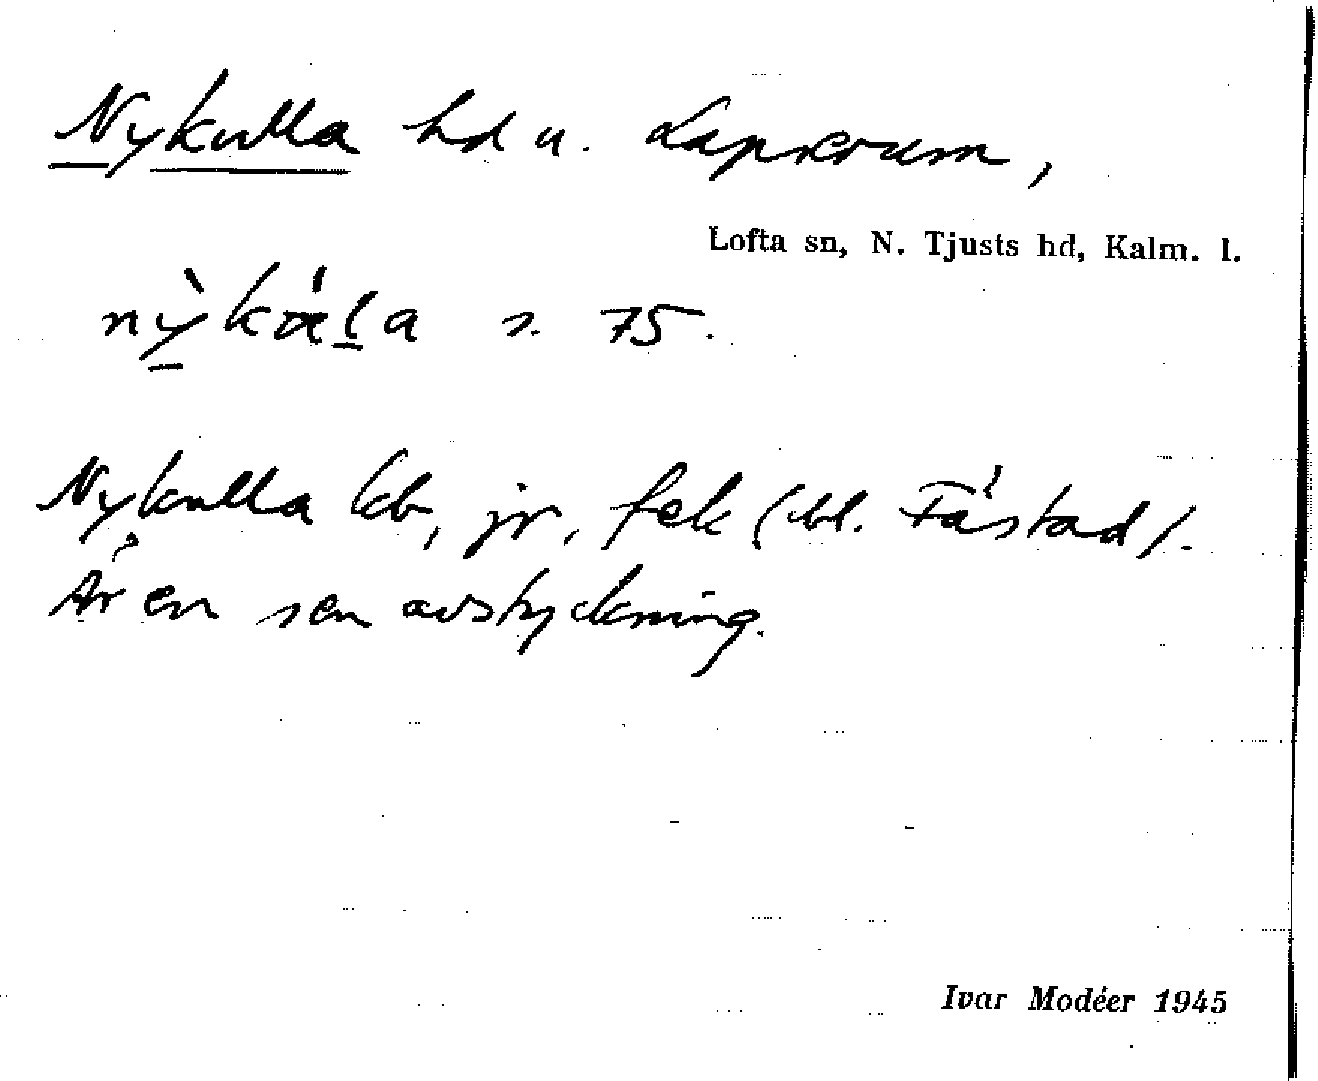 Nykulla hd u. Lapserum,
Lofta sn, N. Tjusts hd, Kalm. l.
s. 75.
Nykulla kb, jr, fek (bl. Fåstad).
Är en sen avstyckning.
Ivar Modéer 1945